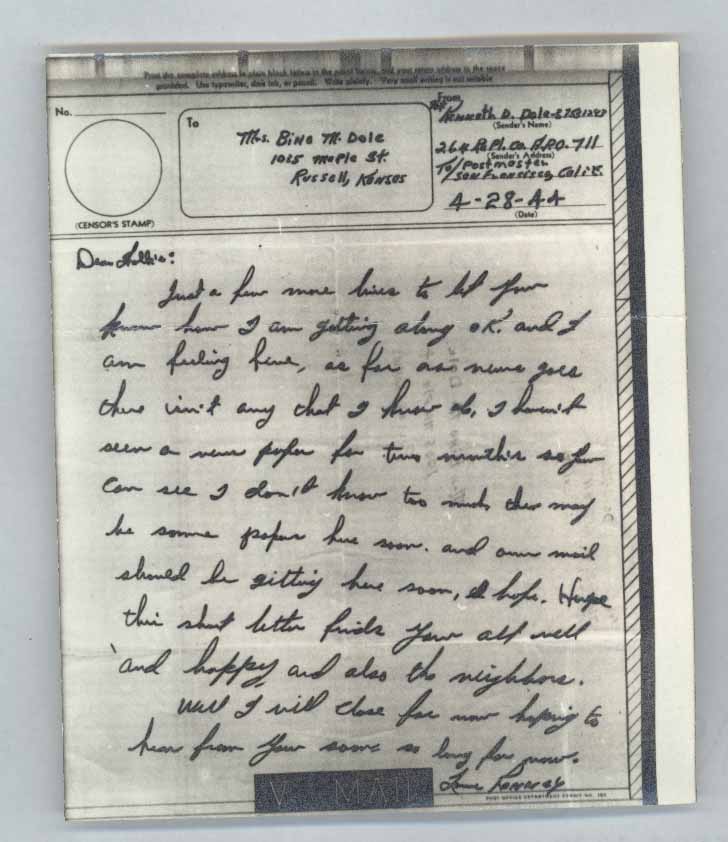 Print the complete address in plain block letters in the panel below, and your return address in the space
provided. Use typewriter, dark ink, or pencil. Write plainly. Very small writing is not suitable
No.
(CENSOR'S STAMP)
To
Mrs. Bina M. Dole
1035 Maple St.
Russell, Kansas
From
Kenneth D. Dole
(Sender's Name)
264 Repl. Co. A.P.O. 711
(Sender's Address)
To/Postmaster
San Francisco, Calif.
4-28-44
(Date)
Dear
Just a few more lines to let you
know how I am getting along OK. and I
am feeling fine, as far as news goes
there isn't any that I know of, I haven't
seen a news paper for two months so you
can see I don't know too much, ther may
be some papers here soon. and our mail
should be gitting here soon, I hope. Hope
this short letter finds you all well
and happy and also the neighbors.
Well I will close for now hoping to
hear from you some so long for now.
Love Kenny
V MAIL
POST OFFICE DEPARTMENT PERMIT NO.